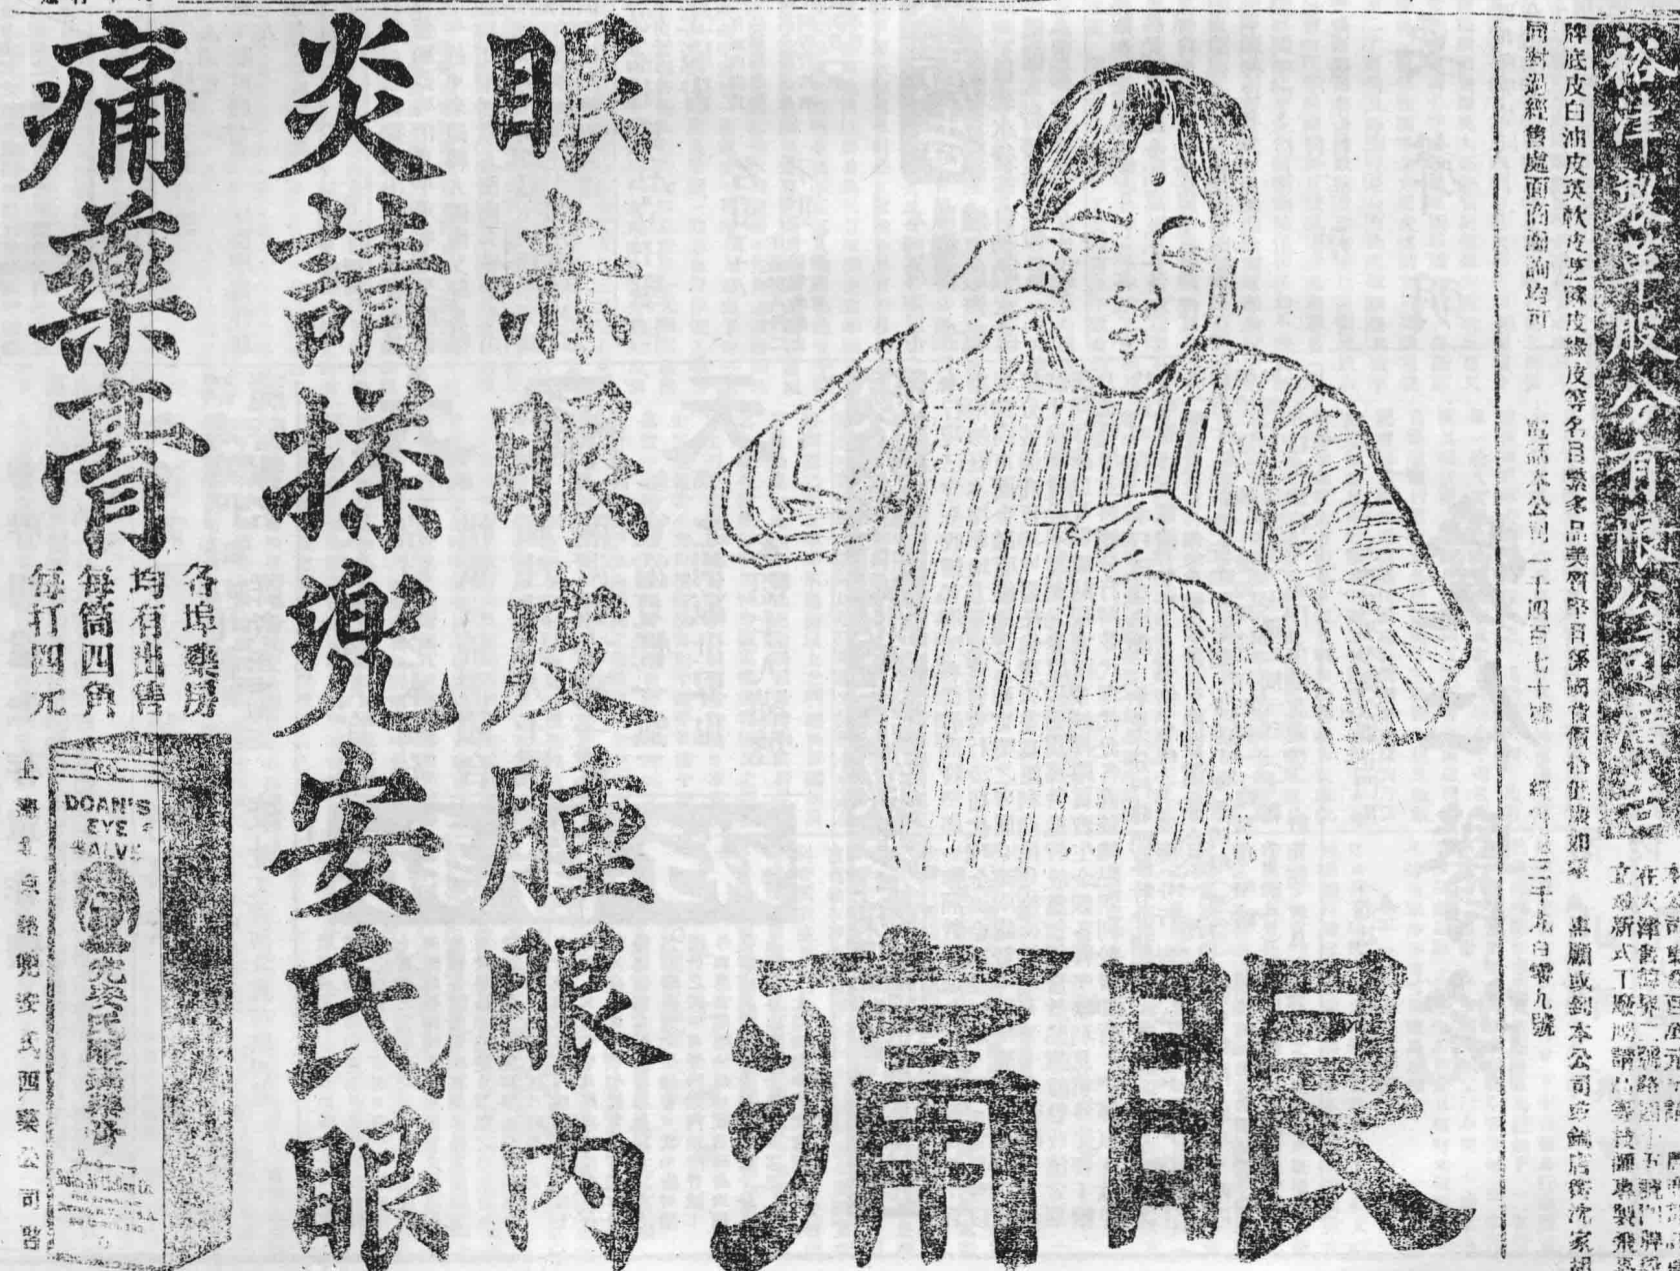 裕津製革股份有限公司廣告
牌底皮白油皮英軟皮芝麻皮綠皮等名目繁多品美質堅自係國貨價格低廉如蒙 惠顧或到本公司或鍋店街沈家胡
同對過經售處面商函詢均可 電話本公司一千四百七十號 三千九百零九號
眼痛
眼赤眼皮腫眼内
炎請搽兜安氏眼
痛藥膏
各埠藥房
均有出售
每筒四角
每打四元
DOAN'S
EYE
SALVE
兜安氏眼痛藥膏
上海北京路兜安氏西藥公司啓